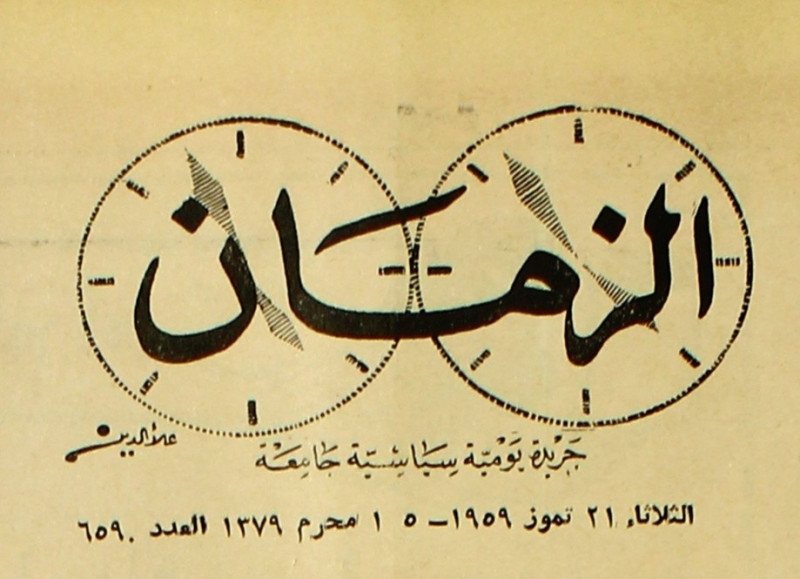 الزمان
علاء الدين
جَرْيدة يَوْميّة سِيَاسِيّة جَامِعَة
الثلاثاء ٢١ تموز ١٩٥٩ – ٥ ١ محرم ١٣٧٩ العدد ٦٥٩٠